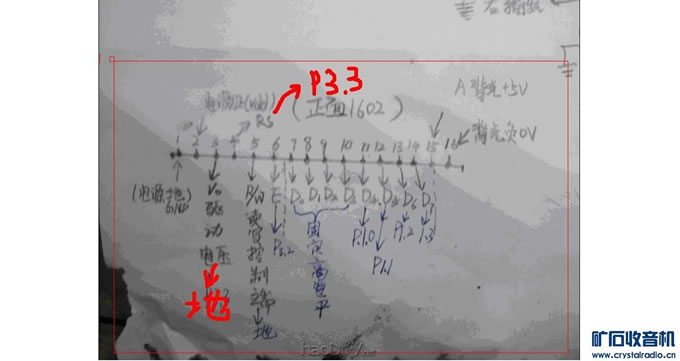 右
P3.3
A 背光+5V
电源正(vdd)
RS
(正面1602)
背光负0V
1 2 3 4 5 6 7 8 9 10 11 12 13 14 15 16
(电源地)
V0驱动电压
地
R/W读写控制端
地
E D0 D1 D2 D3 D4 D5 D6 D7
P3.2
固定高电平
P1.0
P1.1
P1.2
1.3
矿石收音机
www.crystalradio.cn